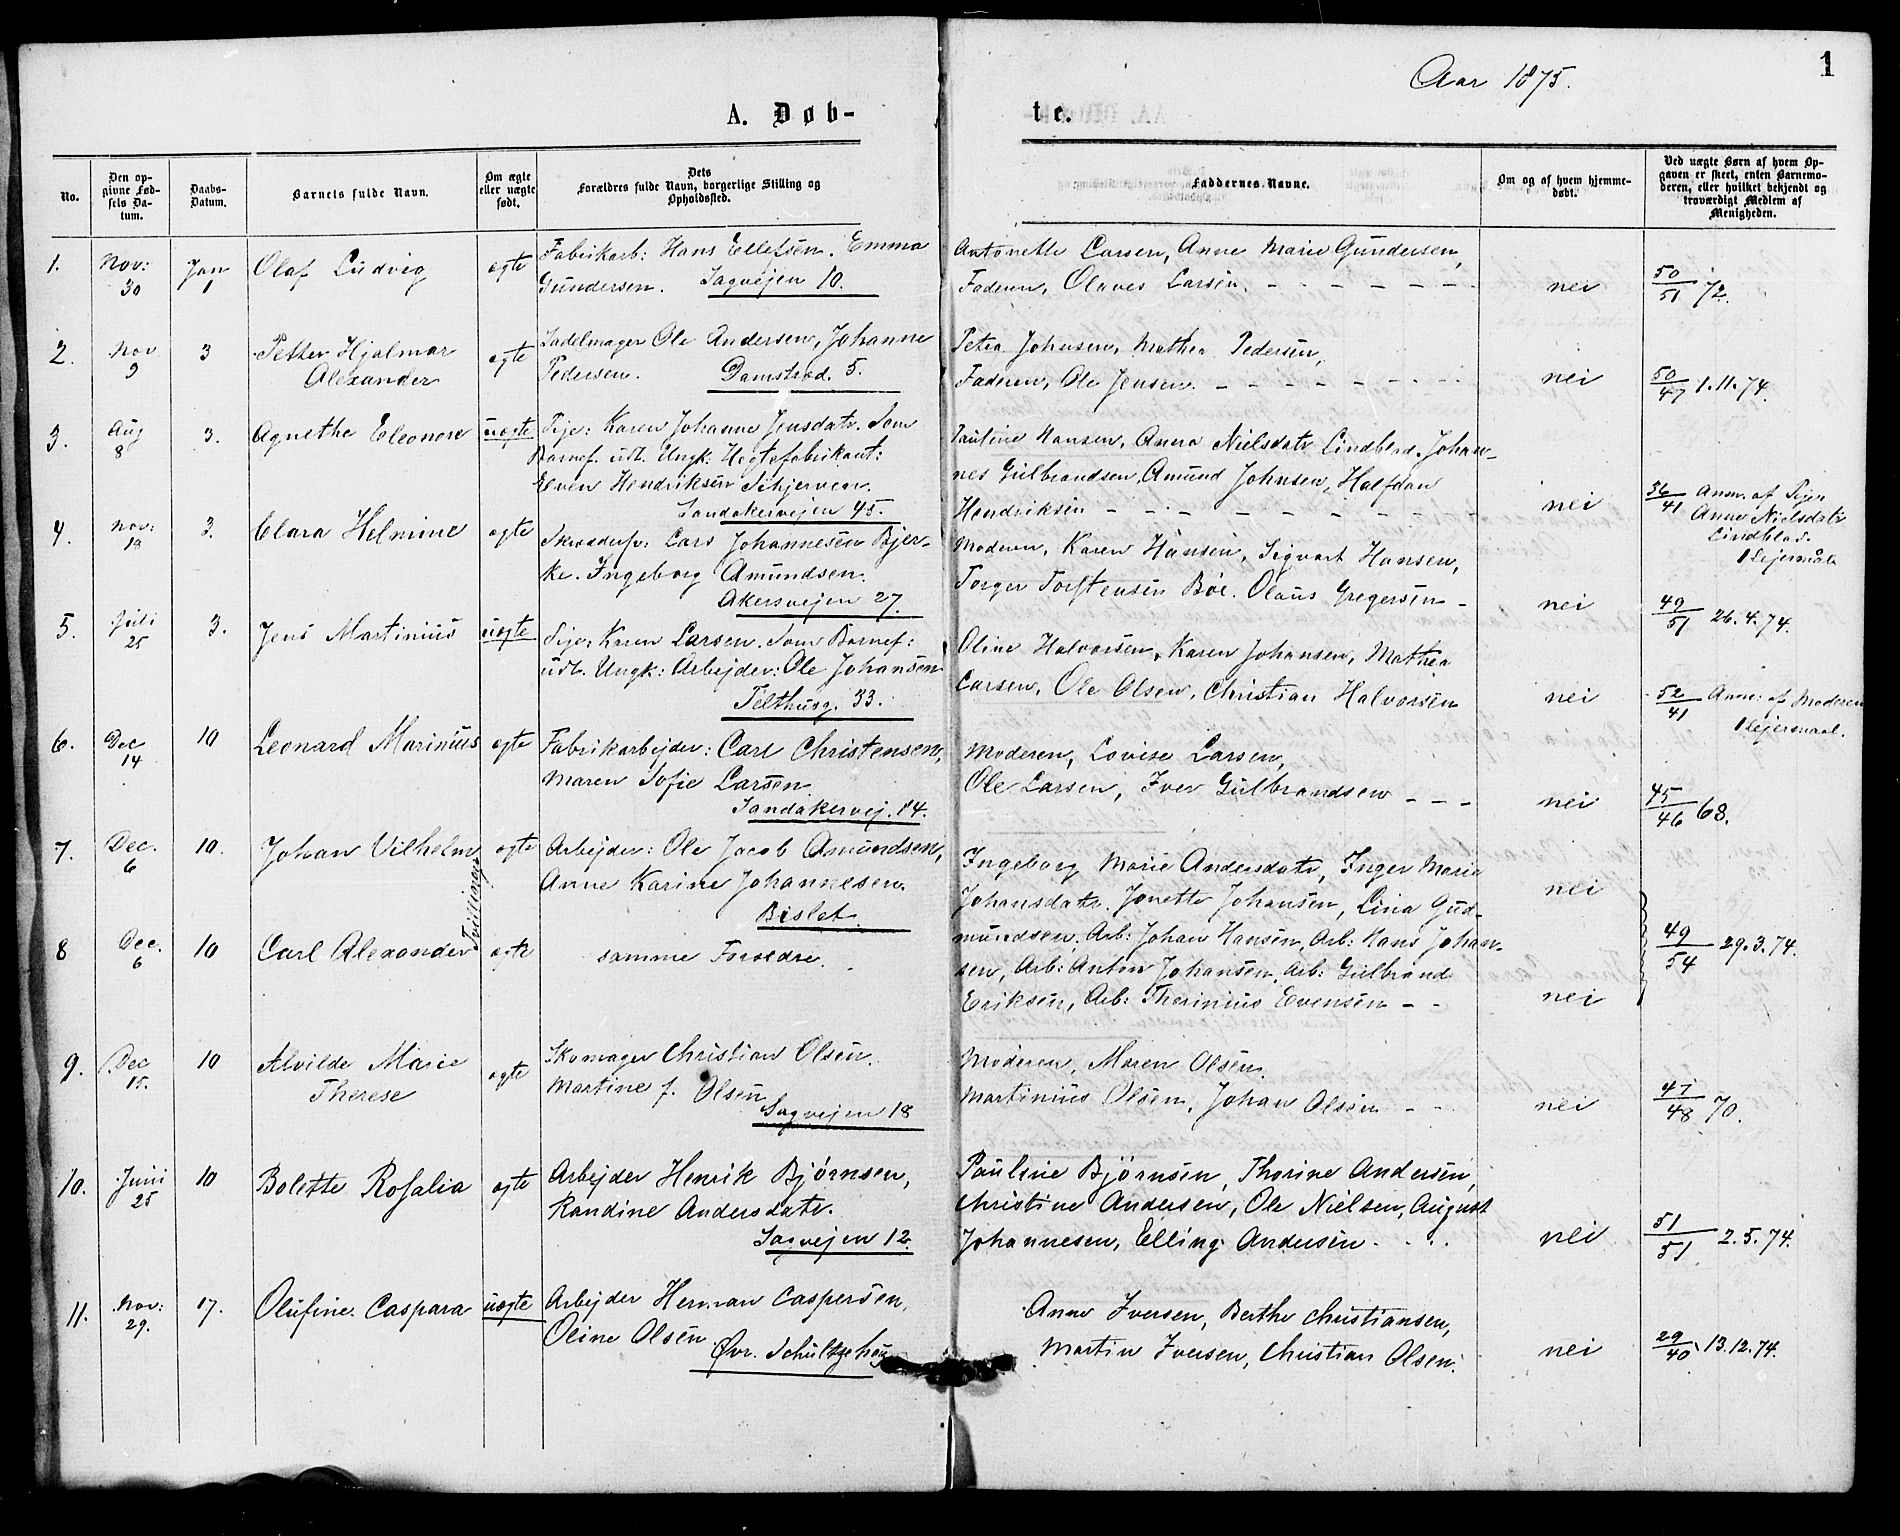 1
Aar 1875.
A. Døb-
te.
No.
Den op-
givne Fød-
sels Da-
tum.
Daabs-
Datum.
Barnets fulde Navn.
Om ægte
eller uægte
født.
Dets
Forældres fulde Navn, borgerlige Stilling og
Opholdssted.
Faddernes Navne.
Om og af hvem hjemme-
døbt.
Ved uægte Børn af hvem Op-
gaven er skeet, enten Barnemo-
deren, eller hvilket bekjendt og
troværdigt Medlem af
Menigheden.
1.
Nov:
30
Jan
1
Olaf Ludvig
ægte
Fabrikarb: Hans Ellefsen. Emma
Gundersen. Sagvejen 10.
Antonette Larsen, Anne Marie Gundersen,
Faderen, Olaves Larsen. - - - - - - -
nei
50
51 72.
2.
Nov
9
3
Petter Hjalmar
Alexander
ægte
Sadelmager Ole Andersen, Johanne
Pedersen. Damstræd. 5.
Petra Johnsen, Mathea Pedersen,
Faderen, Ole Jensen. - - - - - - - -
nei
50
47 1.11.74.
3.
Aug
8
3.
Agnethe Eleonore
uægte
Pije: Karen Johanne Jensdatr. Som
Barnef. udt. Ungk: Hegtefabrikant:
Even Hendriksen Schjerven.
Sandakervejen 45.
Pauline Hansen, Anna Nielsdatr Lindblad. Johan-
nes Gulbrandsen, Amund Johnsen, Halfdan
Hendriksen - - - - - - - - -
nei
36
41 Anm. af Pigen
Anne Nielsdatr
Lindblad.
1 Lejermaal
4.
Nov:
19
3.
Clara Helmine
ægte
Skræddersv: Lars Johannesen Bjer-
ke. Ingeborg Amundsen.
Akersvejen 27.
Moderen, Karen Hansen, Sigvart Hansen,
Torger Torstensen Bøe. Olaus Gregersen -
nei
49
51 26.4.74.
5.
Juli
25
3.
Jens Martinius
uægte
Pije: Karen Larsen. Som Barnef:
udt. Ungk: Arbejder: Ole Johansen
Telthusg. 33.
Oline Halvorsen, Karen Johansen, Mathea
Larsen, Ole Olsen, Christian Halvorsen
nei
52
41 Anm: af Moderen
1 Lejermaal.
6.
Dec
14
10
Leonard Marinius
ægte
Fabrikarbejder: Carl Christensen,
Maren Sofie Larsen.
Sandakervej. 14.
Moderen, Lovise Larsen,
Ole Larsen, Iver Gulbrandsen - - -
nei
45
46 68.
7.
Dec.
6
10.
Johan Vilhelm
Tvillinger
ægte
Arbejder: Ole Jacob Amundsen,
Anne Karine Johannesen.
Bislet.
Ingeborg Marie Andersdatr, Inger Marie
Johansdatr. Jonette Johansen, Lina Gud-
mundsen. Arb: Johan Hansen, Arb: Hans Johan-
sen, Arb: Anton Johansen, Arb: Gulbrand
Eriksen, Arb: Thorinius Evensen - -
nei
8
Dec.
6
10
Carl Alexander
ægte
samme Forældre.
nei
49
54 29.3.74.
9.
Dec
15.
10
Alvilde Marie
Therese
ægte
Skomager Christian Olsen.
Martine f. Olsen
Sagvejen 18
Moderen, Maren Olsen.
Martinius Olsen, Johan Olsen - -
nei
47
48 70.
10.
Juni
25
10
Bolette Rosalia
ægte
Arbejder Henrik Bjørnsen,
Randine Andersdatr.
Sagvejen 12.
Pauline Bjørnsen, Thorine Andersen,
Christine Andersen, Ole Nielsen, August
Johannesen, Elling Andersen. . . .
nei
51
51 2.5.74.
11.
Nov:
29.
17.
Olufine Caspara
uægte
Arbejder Herman Caspersen,
Oline Olsen
Øvr. Schultzehaug
Anne Iversen, Berthe Christiansen,
Martin Iversen, Christian Olsen.
nei
29
40 13.12.74.